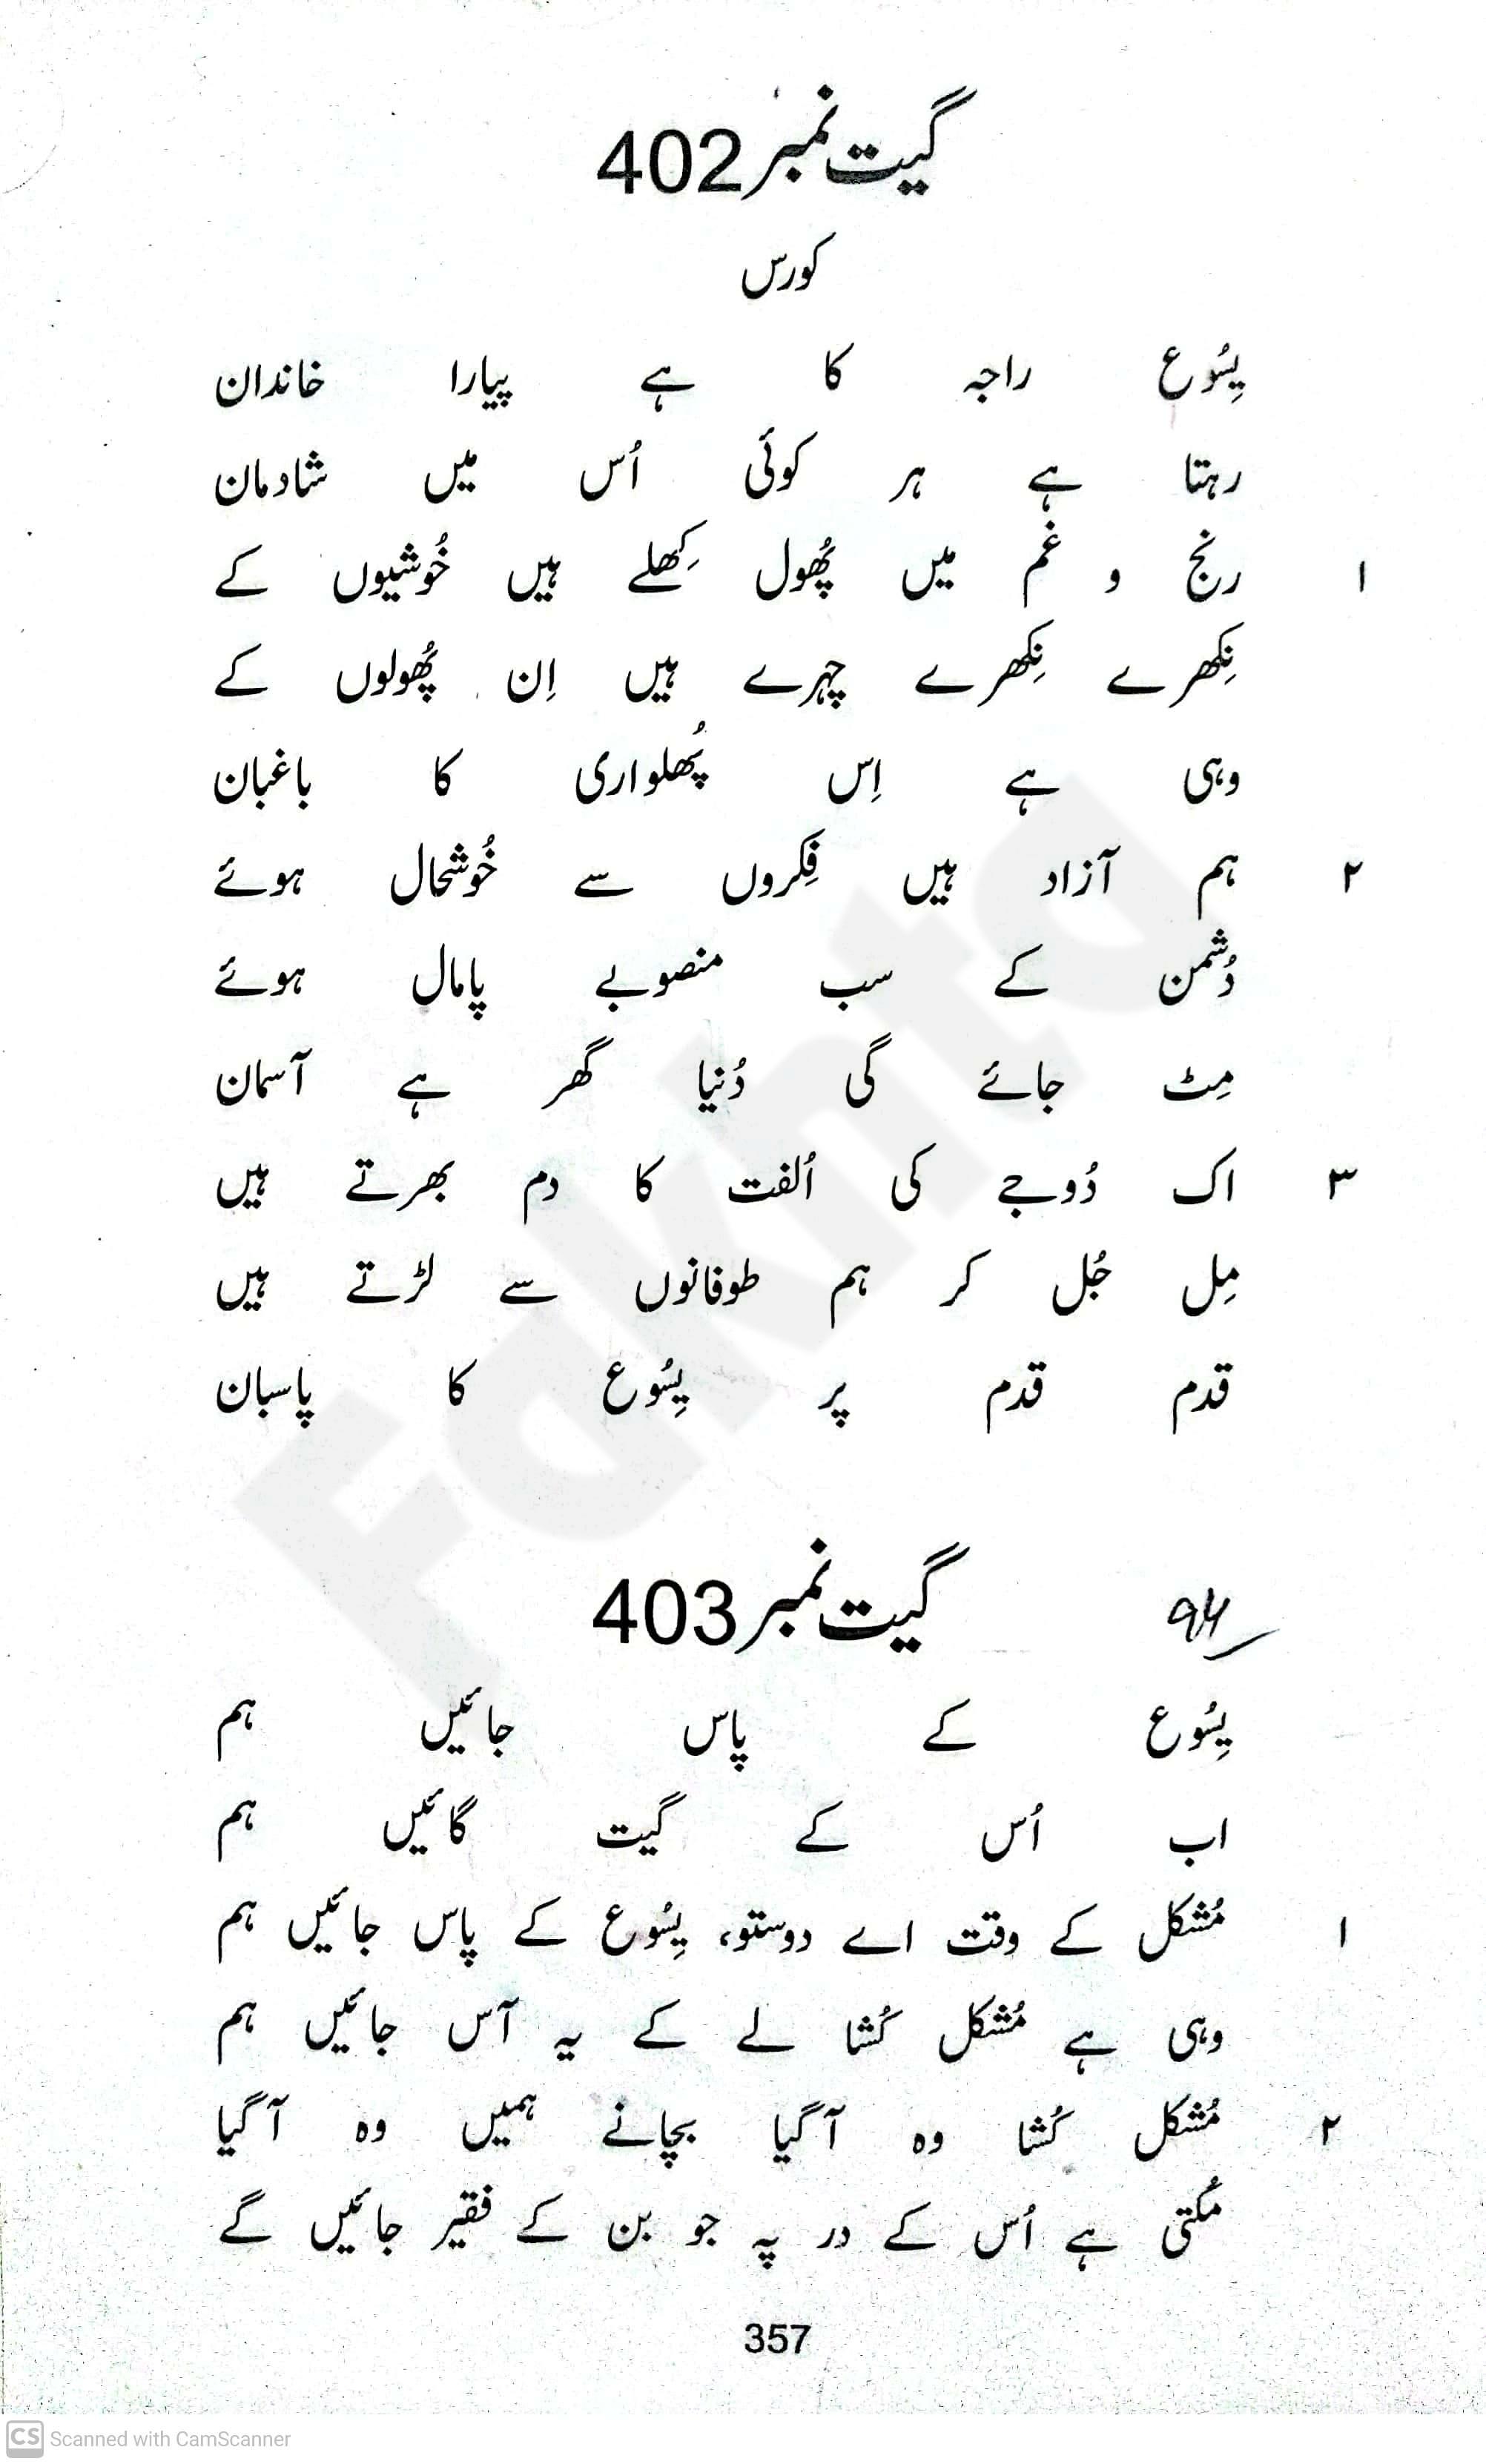 گیت نمبر 402
کورس
یِسُوع راجہ کا ہے پیارا خاندان
رہتا ہے ہر کوئی اُس میں شادمان
۱ رنج و غم میں پُھول کِھلے ہیں خُوشیوں کے
نِکھرے نِکھرے چہرے ہیں اِن پُھولوں کے
وہی ہے اِس پُھلواری کا باغبان
۲ ہم آزاد ہیں فِکروں سے خُوشحال ہوئے
دُشمن کے سب منصوبے پامال ہوئے
مِٹ جائے گی دُنیا گھر ہے آسمان
۳ اک دُوجے کی اُلفت کا دم بھرتے ہیں
مِل جُل کر ہم طوفانوں سے لڑتے ہیں
قدم قدم پر یِسُوع کا پاسبان
گیت نمبر 403
یِسُوع کے پاس جائیں ہم
اب اُس کے گیت گائیں ہم
۱ مُشکل کے وقت اے دوستو، یِسُوع کے پاس جائیں ہم
وہی ہے مُشکل کُشا لے کے یہ آس جائیں ہم
۲ مُشکل کُشا وہ آگیا بچانے ہمیں وہ آگیا
مُکتی ہے اُس کے در پہ جو بن کے فقیر جائیں گے
357
Fakhta
CS Scanned with CamScanner